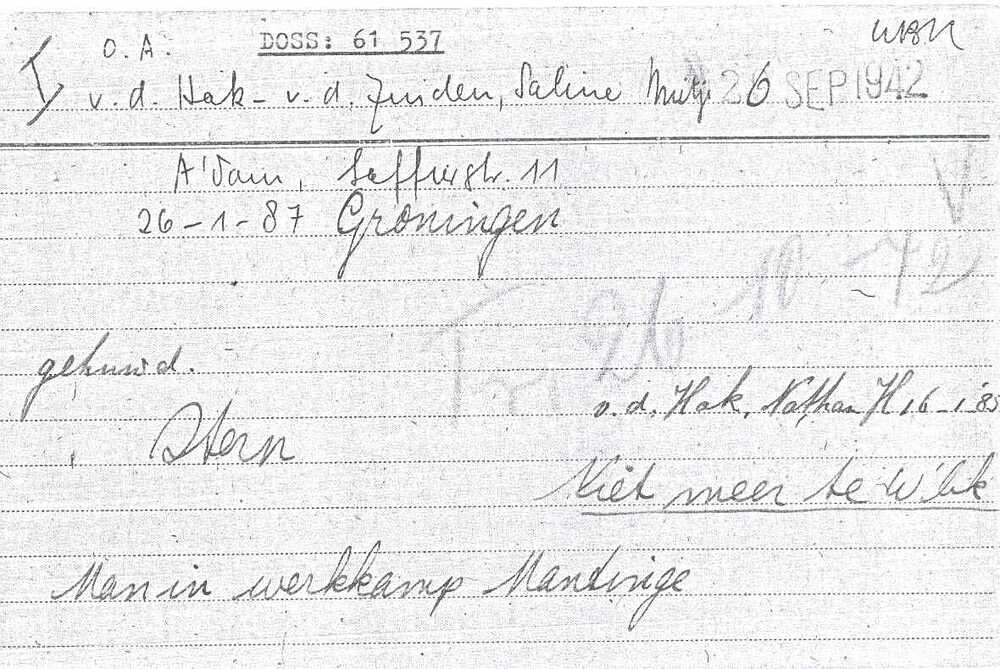 O.A. DOSS: 61 537
v.d. Hak - v.d. Zinden, Saline 26 SEP 1942
A'dam, Saffierstr. 11
26-1-87 Groningen
Tr. 26 10 - 42
gehuwd.
v.d. Hak, Nathan H 16-1-85
Stern
Niet meer te W'bk
Man in werkkamp Mantinge